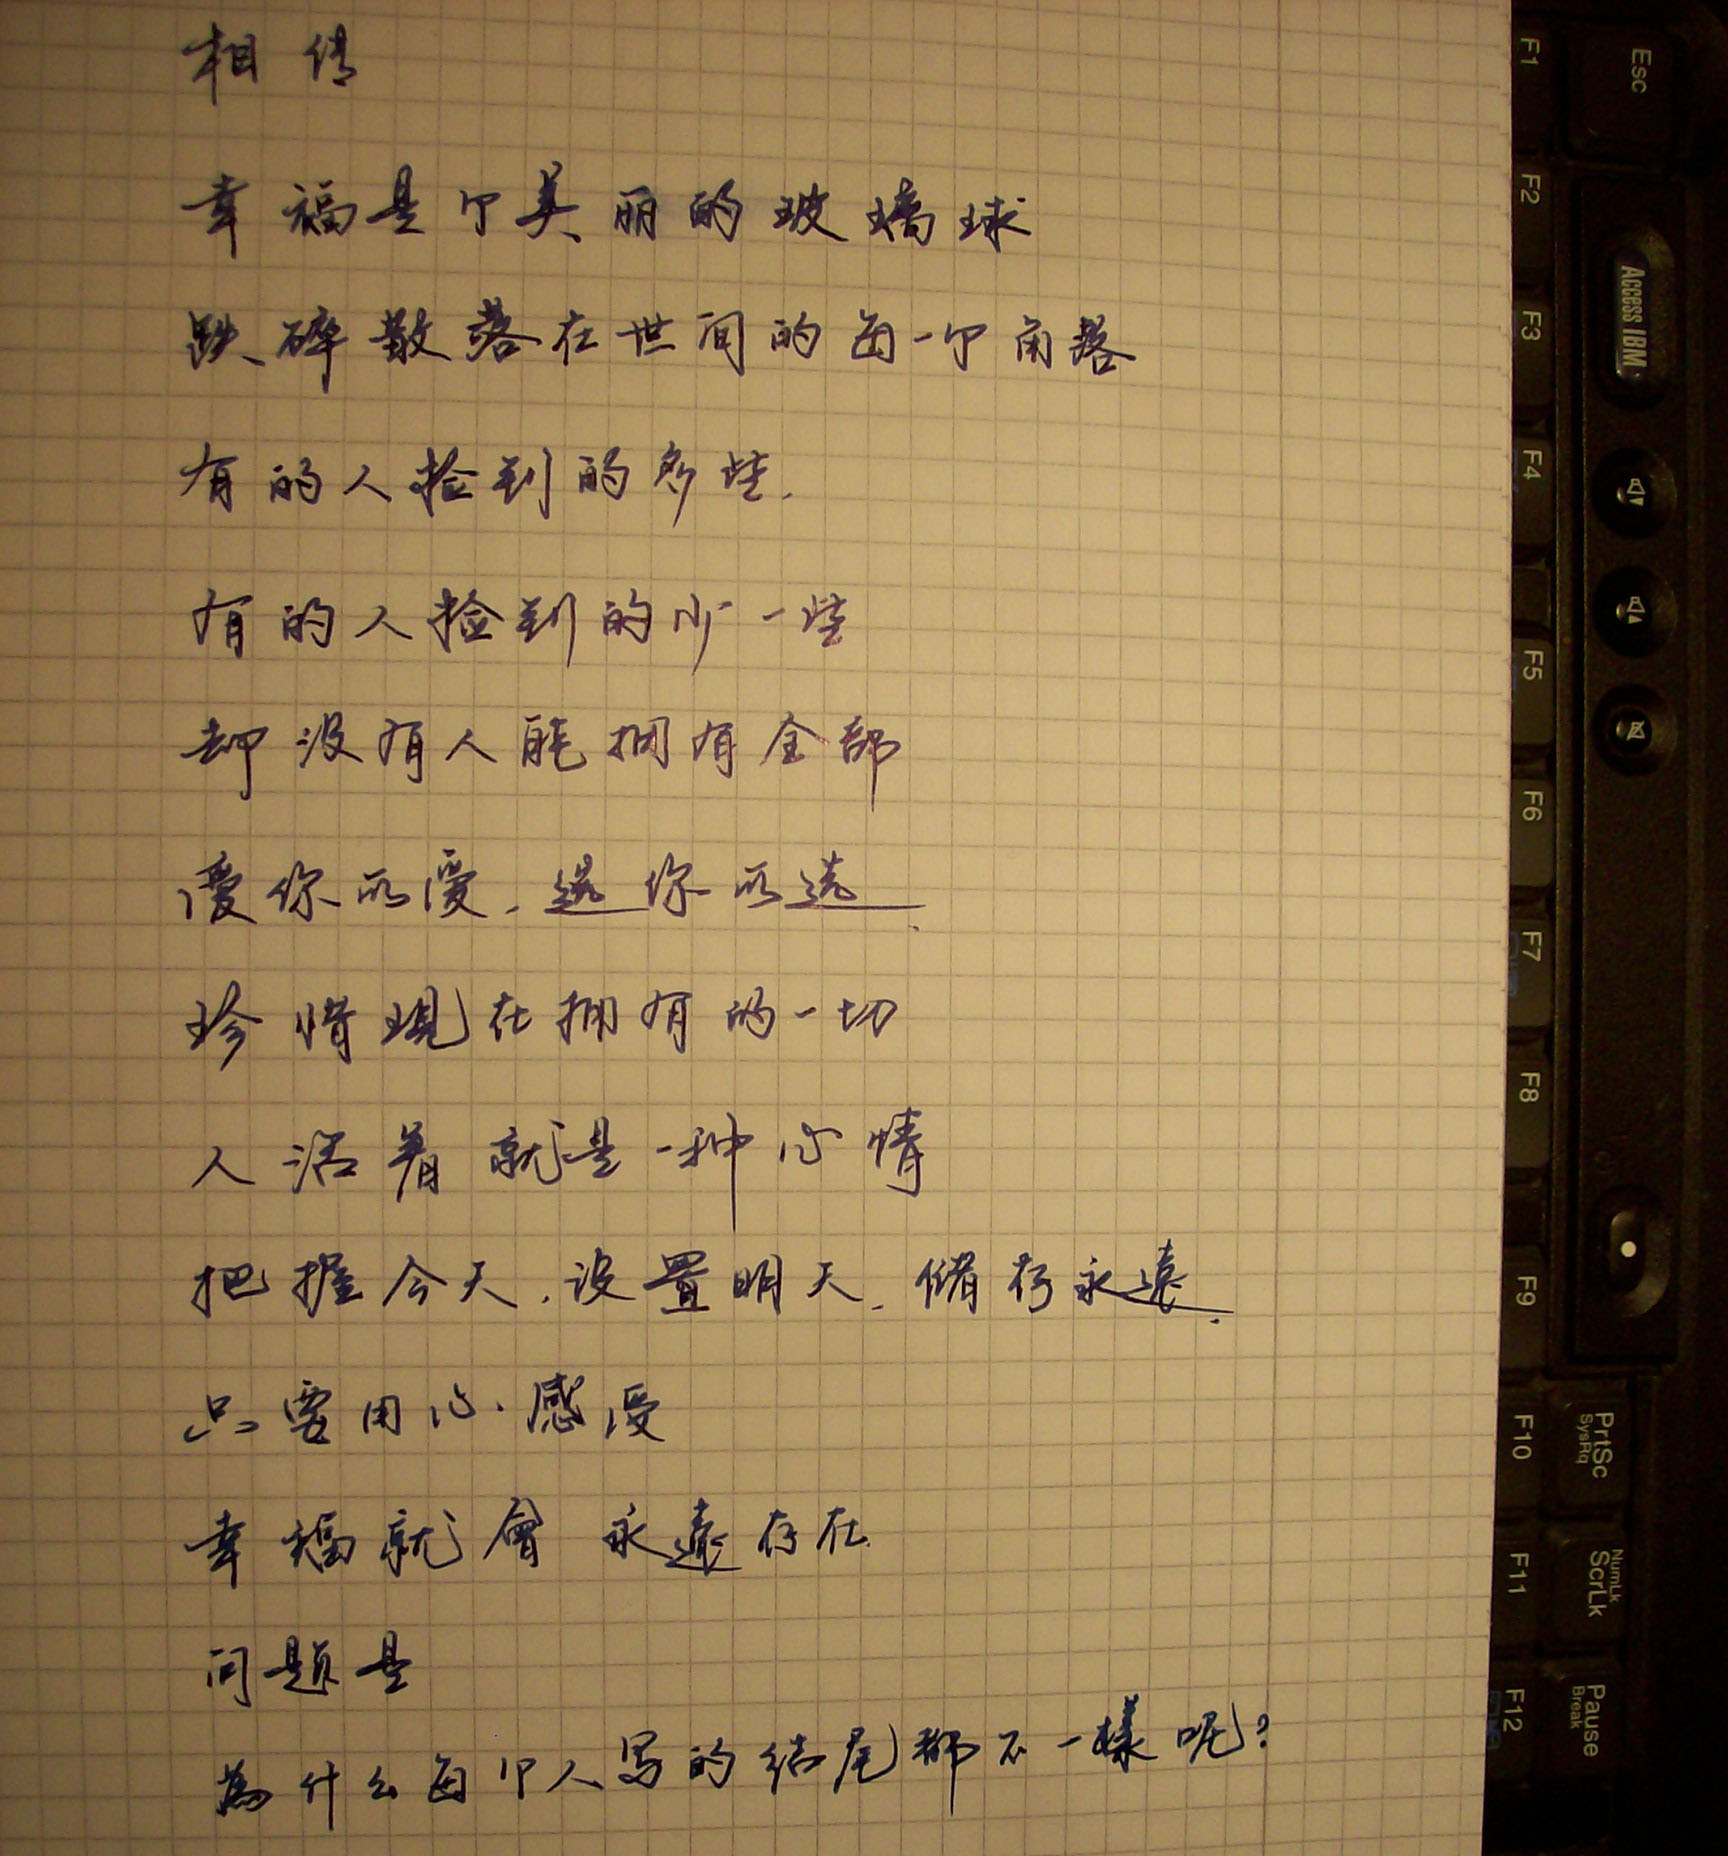 相信
幸福是个美丽的玻璃球
跌碎散落在世间的每一个角落
有的人捡到的多些.
有的人捡到的少一些
却没有人能拥有全部
愛你所愛.选你所选.
珍惜現在拥有的一切
人活着就是一种心情
把握今天.设置明天.储存永遠.
只要用心.感受
幸福就會永遠存在.
问题是
為什么每个人写的结尾都不一樣呢?
Esc
F1
F2
Access IBM
F3
F4
F5
F6
F7
F8
F9
PrtSc
SysRq
F10
NumLk
ScrLk
F11
Pause
Break
F12